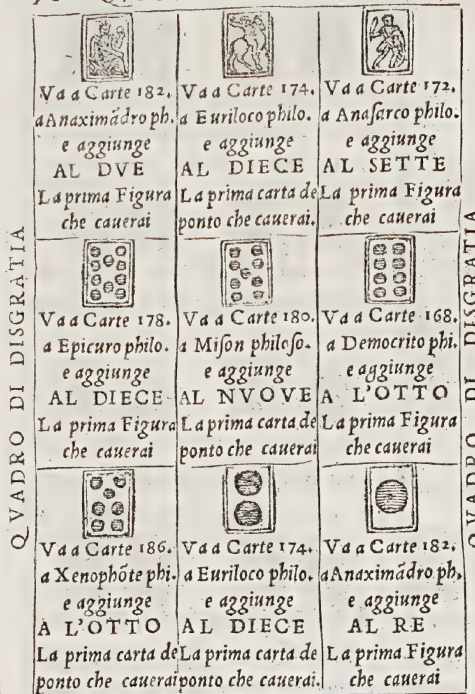 QVADRO DI DISGRATIA
Va a Carte 182.
a Anaximãdro ph.
e aggiunge
AL DVE
La prima Figura
che cauerai
Va a Carte 174.
a Euriloco philo.
e aggiunge
AL DIECE
La prima carta de
ponto che cauerai.
Va a Carte 172.
a Anasarco philo.
e aggiunge
AL SETTE
La prima Figura
che cauerai
Va a Carte 178.
a Epicuro philo.
e aggiunge
AL DIECE
La prima Figura
che cauerai
Va a Carte 180.
a Mison philoso.
e aggiunge
AL NVOVE
La prima carta de
ponto che cauerai
Va a Carte 168.
a Democrito phi.
e aggiunge
A L'OTTO
La prima Figura
che cauerai
Va a Carte 186.
a Xenophõte phi.
e aggiunge
A L'OTTO
La prima carta de
ponto che cauerai
Va a Carte 174.
a Euriloco philo.
e aggiunge
AL DIECE
La prima carta de
ponto che cauerai.
Va a Carte 182.
a Anaximãdro ph.
e aggiunge
AL RE
La prima Figura
che cauerai
QVADRO DI DISGRATIA